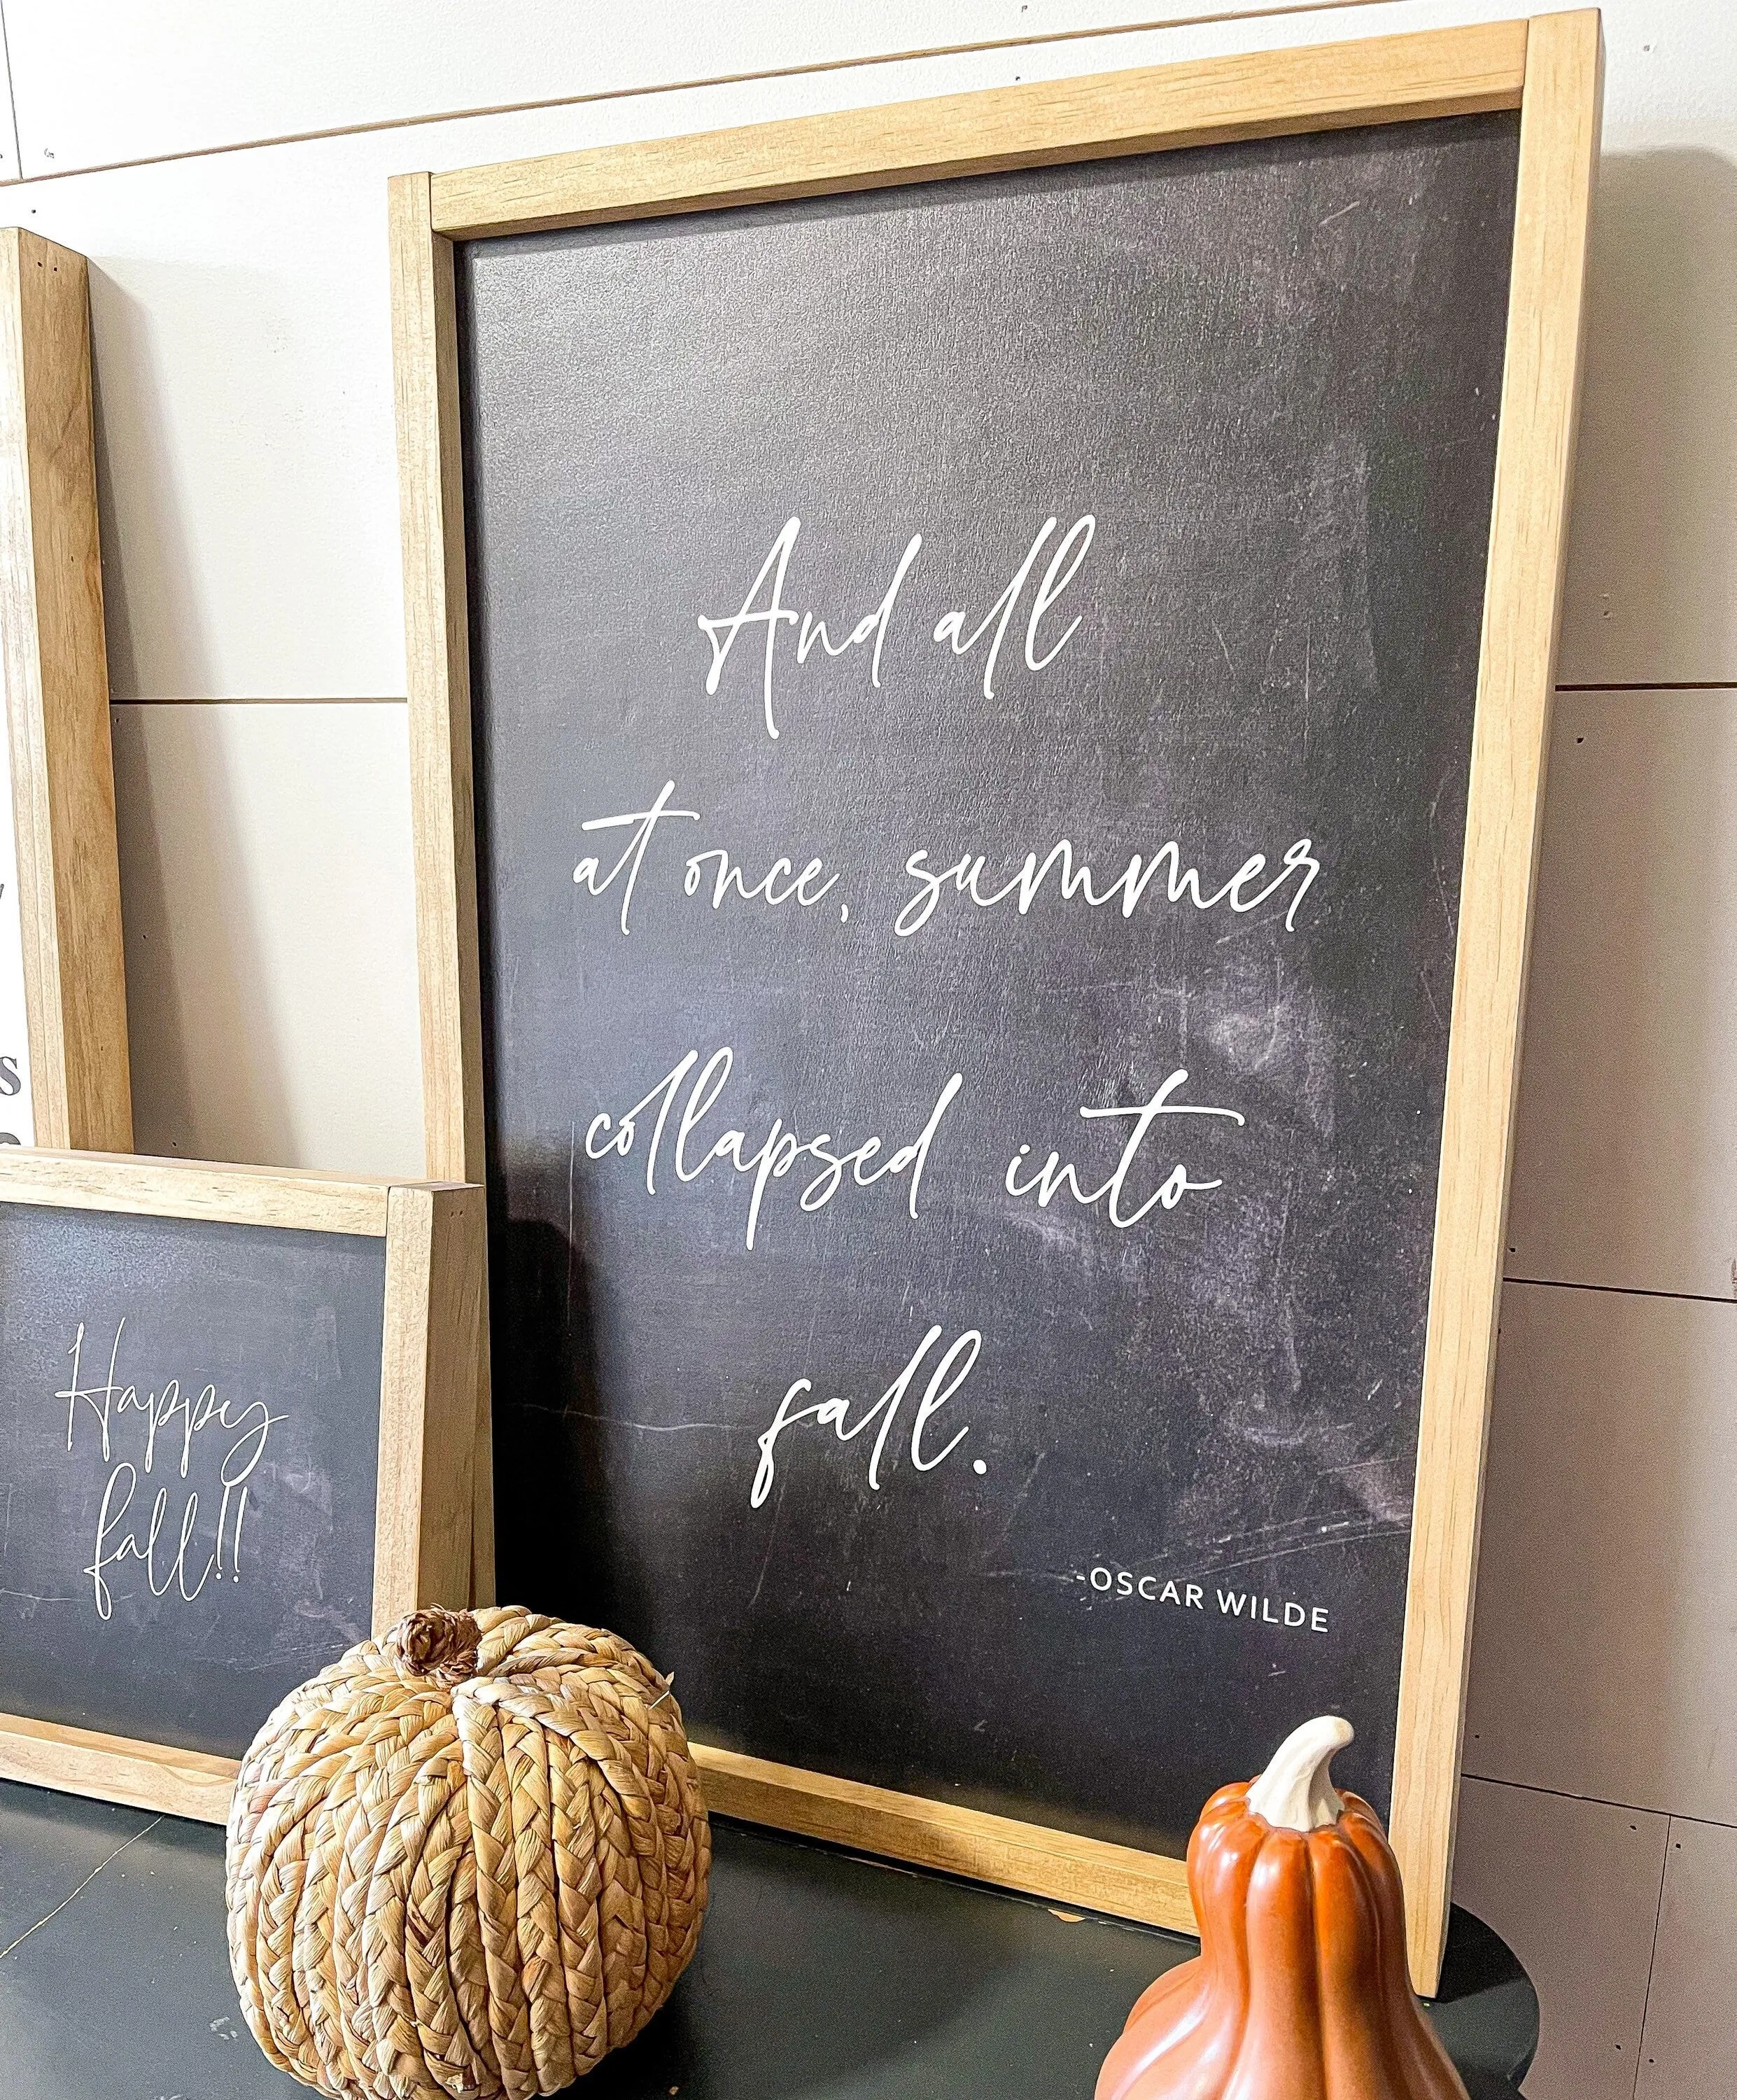 And all
at once, summer
collapsed into
fall.
-OSCAR WILDE
Happy
fall!!